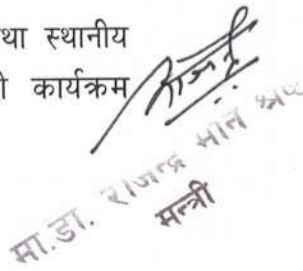 था स्थानीय
ी कार्यक्रम
मा.डा. राजेन्द्र मान
मन्त्री